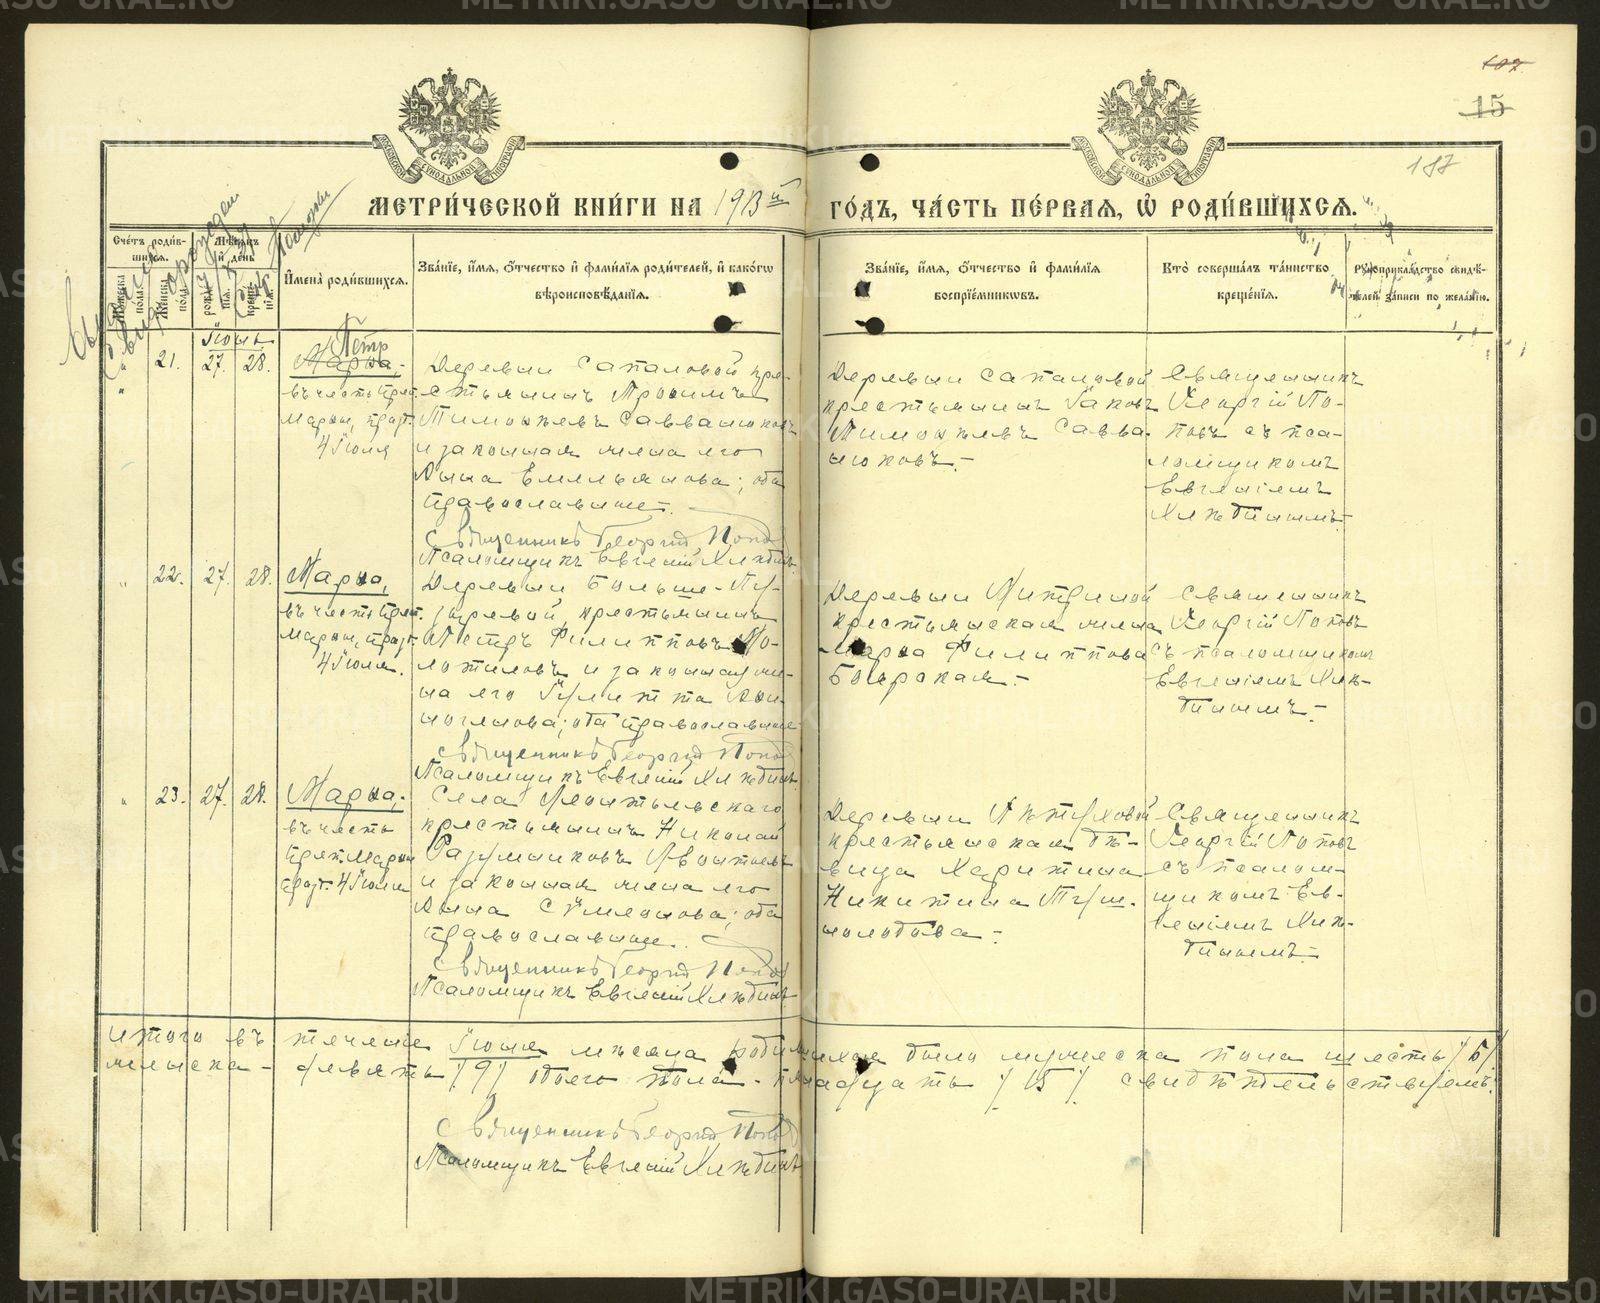 METRIKI.GASO-URAL.RU
107
15
187
МЕТРИ́ЧЕСКОЙ КНИ́ГИ НА 1913й ГО́ДЪ, ЧА́СТЬ ПЕ́РВАЯ, Ѡ РОДИ́ВШИХСЯ.
Сче́тъ роди́в-
шихся.
Му́жеска по́ла.
Же́нска по́ла.
Мѣ́сяцъ и҆ де́нь
рожде́нїя.
креще́нїя.
И҆мена̀ роди́вшихся.
Зва́нїе, и҆́мя, ѻ҆́тчество и҆ фами́лїя роди́телей, и҆ како́гѡ
вѣроисповѣ́данїя.
Зва́нїе, и҆́мя, ѻ҆́тчество и҆ фами́лїя
воспрїе́мникѡвъ.
Кто̀ соверша́лъ та́инство
креще́нїя.
Рꙋкоприкла́дство свидѣ́-
телей за́писи по жела́нїю.
Іюнь.
Петр
21. 27. 28. Марѳа,
въ честь преп.
Марѳы, празд.
4 Іюля
Деревни Сапаловой кре-
стьянинъ Трофимъ
Тимофѣевъ Савванюковъ
и законная жена его
Анна Емельянова; оба
православные.
Священникъ Георгій Попов
Псаломщикъ Евгеній Хлѣбинъ
Деревни Сапаловой
крестьянинъ Іаковъ
Тимофѣевъ Савва-
нюковъ.
Священникъ
Георгій По-
повъ съ пса-
ломщикомъ
Евгеніемъ
Хлѣбинымъ.
22. 27. 28. Марѳа,
въ честь преп.
Марѳы, празд.
4 Іюля.
Деревни Больше-Пу-
зыревой крестьянинъ
Петръ Филипповъ По-
лотиловъ и законная же-
на его Іулитта
оба православные
Священникъ Георгій Попов
Псаломщикъ Евгеній Хлѣбинъ
Деревни
крестьянская жена
Марѳа Филиппова
Боярская.
Священникъ
Георгій Поповъ
съ псаломщикомъ
Евгеніемъ Хлѣ-
бинымъ.
23. 27. 28. Марѳа,
въ честь
преп. Марѳы
празд. 4 Іюля
Села Леонтьевскаго
крестьянинъ Николай
Разумниковъ Леонтьевъ
и законная жена его
Анна Сѵмеонова; оба
православные.
Священникъ Георгій Попов
Псаломщикъ Евгеній Хлѣбинъ
Деревни Пѣтуховой
крестьянская дѣ-
вица Харитина
Никитина
Священникъ
Георгій Поповъ
съ псалом-
щикомъ Ев-
геніемъ Хлѣ-
бинымъ.
Итого въ теченіе Іюня мѣсяца родившихся было мужеска пола шесть /6/
женска - девять /9/ обоего пола - пятнадцать /15/ свидѣтельствуемъ:
Священникъ Георгій Попов
Псаломщикъ Евгеній Хлѣбинъ